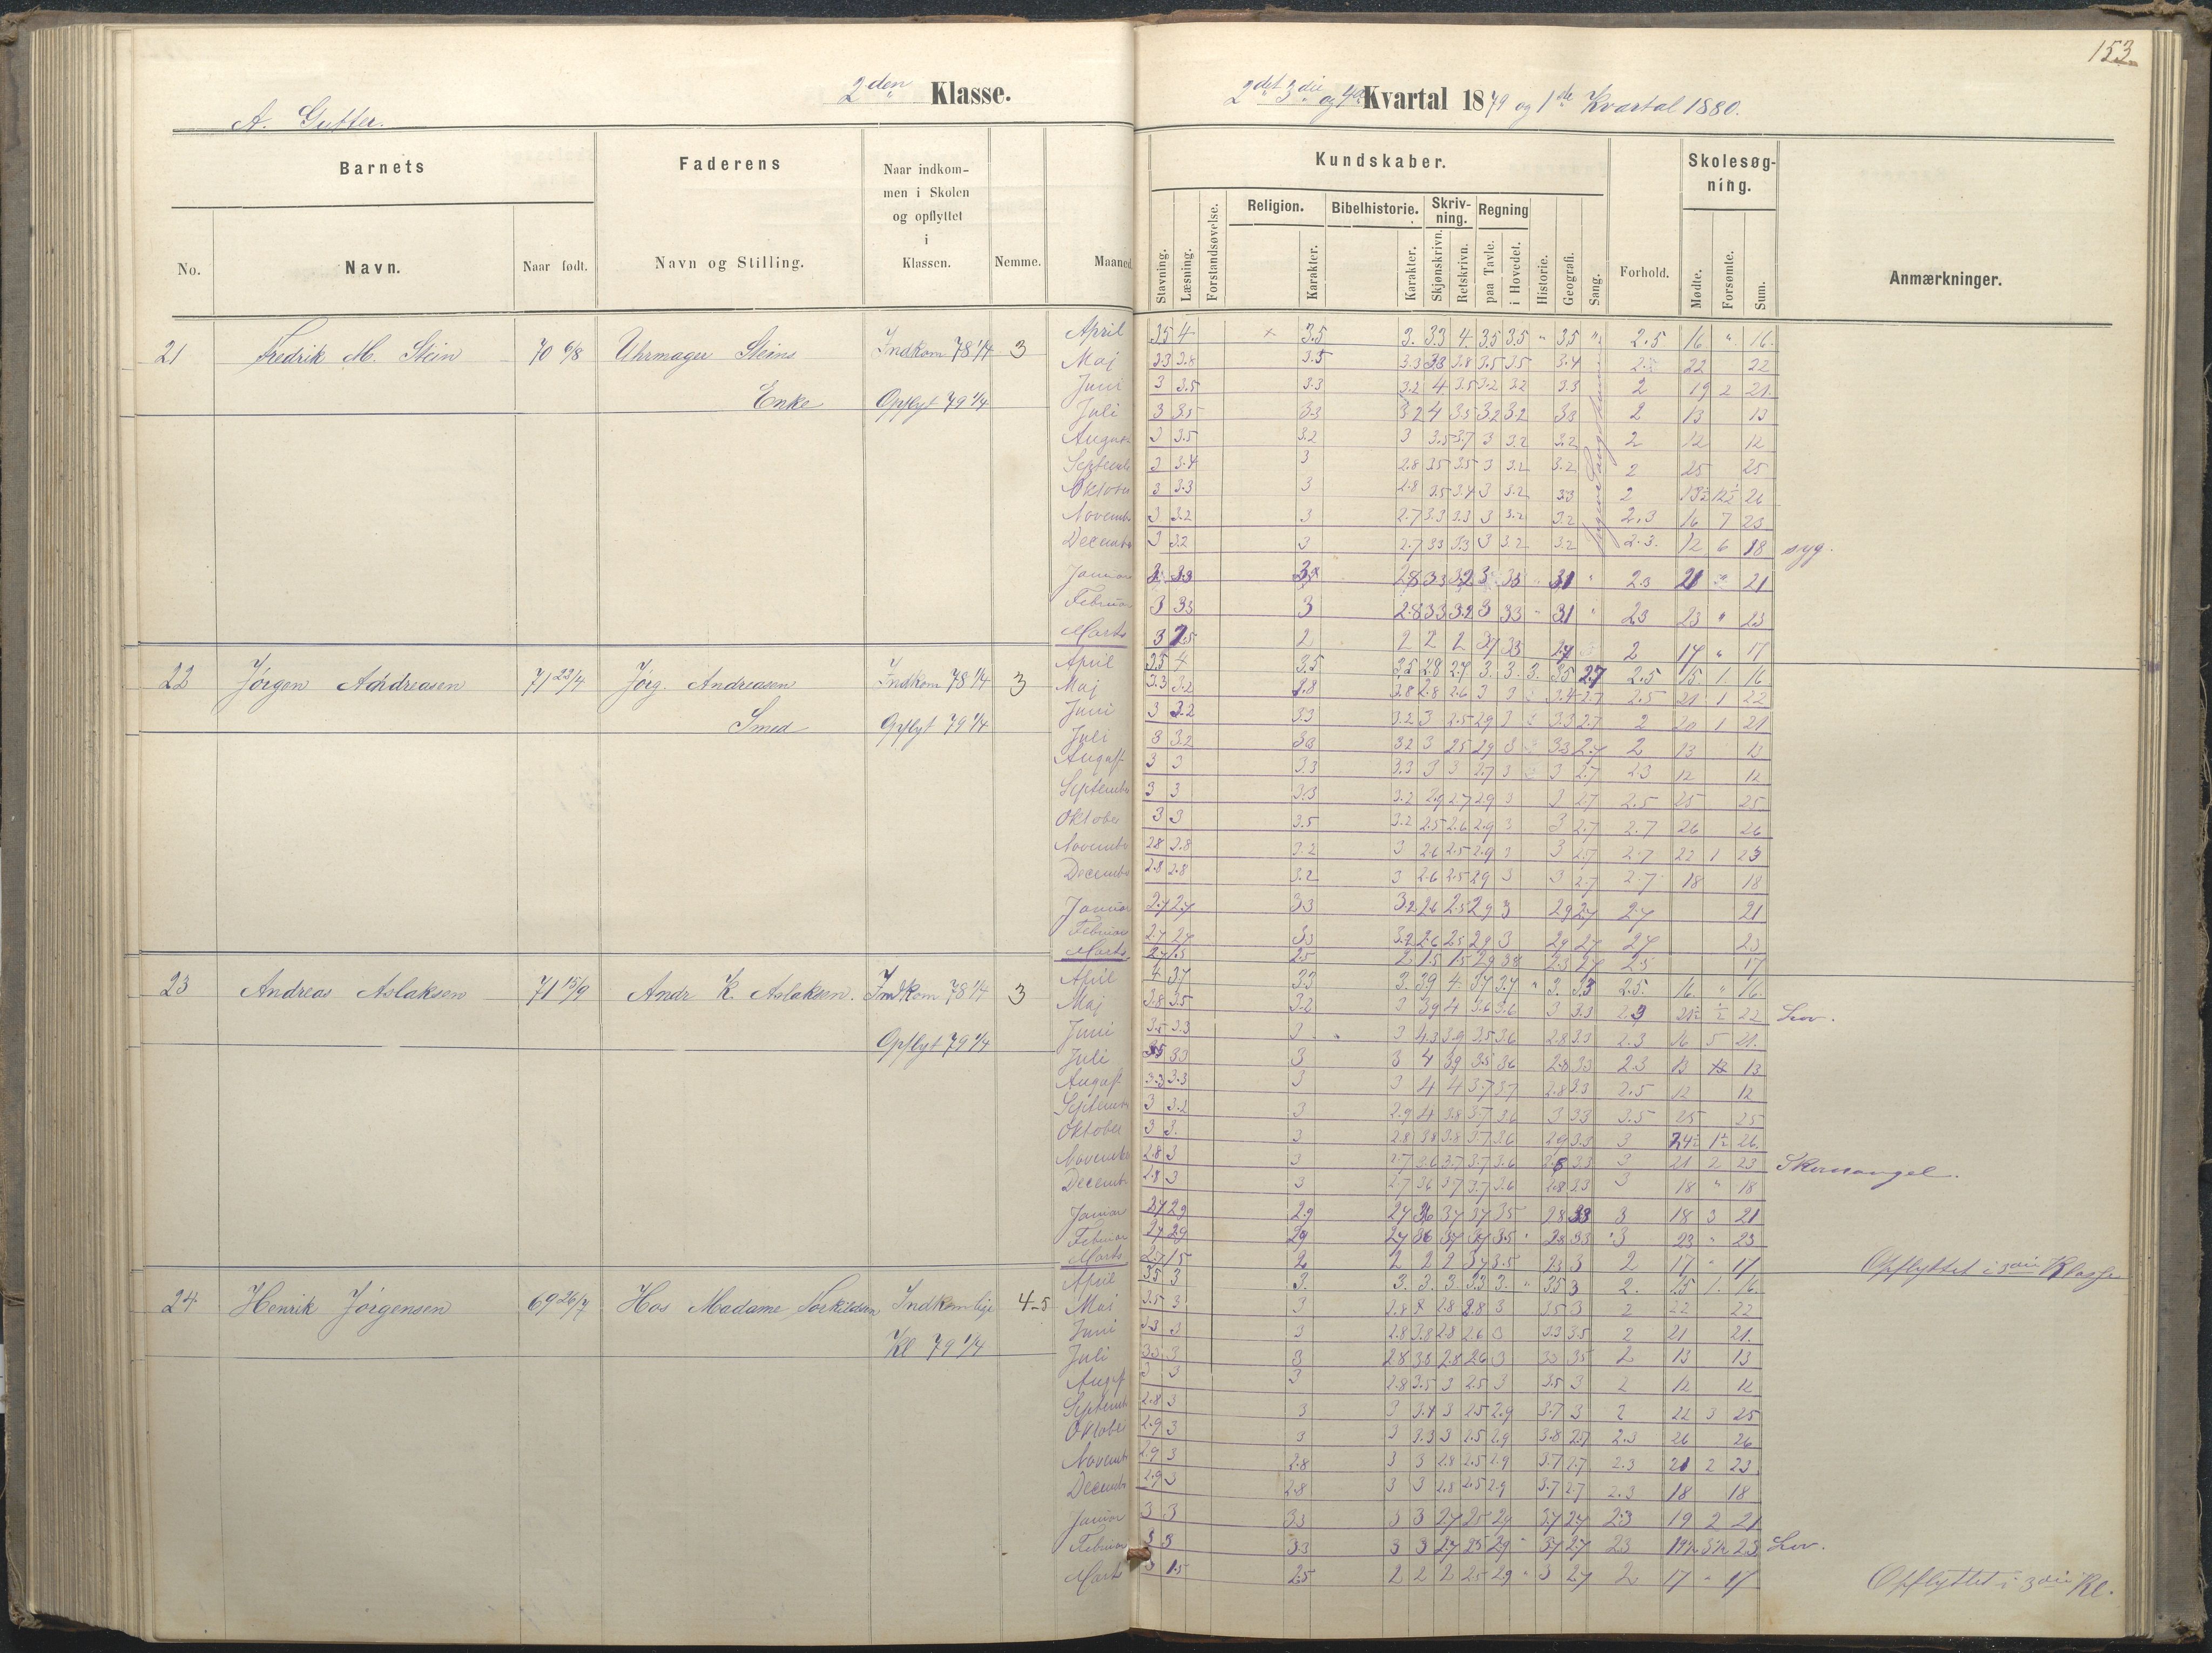 153
2den Klasse.
2det 3die og 4de Kvartal 1879 og 1ste Kvartal 1880.
A. Gutter.
Barnets
Faderens
Naar indkommen i Skolen og opflyttet i Klassen.
Nemme.
Maaned
Kundskaber.
Skolesøgning.
Anmærkninger.
No.
Navn.
Naar født.
Navn og Stilling.
Stavning.
Læsning.
Forstandsøvelse.
Religion.
Karakter.
Bibelhistorie.
Karakter.
Skrivning.
Skjønskrivn.
Retskrivn.
Regning
paa Tavle.
i Hovedet.
Historie.
Geografi.
Sang.
Forhold.
Mødte.
Forsømte.
Sum.
21 Fredrik M. Stein 70 6/8 Uhrmager Steins Indkom 78 1/4 3
Enke Opflyt 79 1/4
April 3.5 4 3.5 3. 3.3 4. 3.5 3.5 " 3.5 " 2.5 16 " 16.
Maj 3.3 3.8 3.5 3.3 3.3 3.8 3.5 3.5 3.4 22 22
Juni 3 3.5 3.3 3.2 4 3.5 3.2 3.2 3.3 2 19 2 21.
Juli 3 3.5 3.3 3.2 4 3.5 3.2 3.2 3.3 2 13 13
August 3 3.5 3.2 3 3.5 3.7 3 3.2 3.2 2 12 12
Septemb 3 3.4 3 2.8 3.5 3.5 3 3.2 3.2 2 25 25
Oktober 3 3.3 3 2.8 3.5 3.4 3 3.2 3.3 2 13½ 12½ 26
Novemb 3 3.2 3 2.7 3.3 3.3 3 3.2 3.2 2.3 16 7 23
Decemb 3 3.2 3 2.7 3.3 3.3 3 3.2 3.2 2.3. 12 6 18 syg.
Januar 3 3.3 2.8 3.3 3.2 3 3.3 " 3.1 " 2.3 21 " 21
Februar 3 3.3 3 2.8 3.3 3.2 3 3.3 " 3.1 " 2.3 23 " 23
Marts 3 2.5 2 2 2 2 3.3 2.7 2 17 " 17
22 Jørgen Andreasen 71 23/4 Jørg. Andreasen Indkom 78 1/4 3
Smed Opflyt 79 1/4
April 3.5 4 3.5 3.5 2.8 2.7 3. 3. 3. 3.5 2.7 2.5 15. 1. 16
Maj 3.3 3.2 3.8 2.8 2.6 3 3 3.4 2.7 2.5 21 1 22
Juni 3 3.2 3.3 3.2 3 2.5 2.9 3 3.3 2.7 2 20 1 21
Juli 3 3.2 3.3 3.2 3 2.5 2.9 3 3.3 2.7 2 13 13
August 3 3 3.3 3.3 3 3 2.7 3 3 2.7 2.3 12 12
Septembe 3 3 3.3 3.2 2.9 2.7 2.9 3 3 2.7 2.5 25 25
Oktober 3 3 3.5 3.2 2.5 2.6 2.9 3 3 2.7 2.7 26 26
Novembe 2.8 2.8 3.2 3 2.6 2.5 2.9 3 3 2.7 2.7 22 1 23
Decembe 2.8 2.8 3.2 3 2.6 2.5 2.9 3 3 2.7 2.7 18 18
Januar 2.7 2.7 3.3 3.2 2.6 2.5 2.9 3 2.9 2.7 2.7 21
Februar 2.7 2.7 3.3 3.2 2.6 2.5 2.9 3 2.9 2.7 2.7 23
Marts 2.7 1.5 2.5 2 1.5 1.5 2.9 3.8 2.3 2.7 2.5 17
23 Andreas Aslaksen 71 15/9 Andr K. Aslaksen. Indkom 78 1/4 3
Opflyt 79 1/4
April 4 3.7 3.3 3. 3.9 4. 3.7 3.7 " 3. 3.3 2.5. 16. " 16.
Maj 3.8 3.5 3.2 3 3.9 4 3.6 3.6 3 3.3 2.3 21½ ½ 22 Lov.
Juni 3.5 3.3 3 3 4.3 3.9 3.5 3.6 2.8 3.3 2.3 16 5 21.
Juli 3.5 3.3 3 3 4 3.9 3.5 3.6 2.8 3.3 2.3 13 13
August 3.3 3.3 3 3 4 4 3.7 3.7 2.8 3.3 2.5 12 12
Septemb 3 3.2 3 2.9 4 3.8 3.7 3.6 3 3.3 3.5 25 25
Oktober 3 3. 3 2.8 3.8 3.8 3.7 3.6 2.9 3.3 3 24½ 1½ 26.
Novembe 2.8 3 3 2.7 3.6 3.7 3.7 3.6 2.8 3.3 3 21 2 23 Skomangel.
Decemb 2.8 3 3 2.7 3.6 3.7 3.7 3.6 2.8 3.3 3 18 " 18
Januar 2.7 2.9 2.9 2.7 3.6 3.7 3.7 3.5 2.8 3.3 3 18 3 21
Februar 2.7 2.9 2.9 2.7 3.6 3.7 3.7 3.5 " 2.8 3.3 3 23 " 23
Marts 2.7 1.5 2 2 2 2 3.7 3.5 2.3 3 2 17 " 17 Opflyttet i 3die Klasse
24 Henrik Jørgensen 69 26/7 Hos Madame Torkildsen Indkom lige 4-5
Kl 79 1/4
April 3.5 3 3. 3. 3. 3 3.3 3. " 3.5 3 2. 15 1. 16.
Maj 3.5 3 3 2.8 4 2.8 2.8 3 3.5 3 2 22 22
Juni 3.3 3 3 2.8 3.8 2.8 2.6 3 3.3 3.5 2 21 21.
Juli 3.3 3 3 2.8 3.8 2.8 2.6 3 3.5 2 13 13
August 3 3 3 2.8 3.5 3 2.5 3 3.5 3 2 12 12
Septemb 2.8 3 3 3 3.4 3 2.5 2.9 3.7 3 2 22 3 25
Oktober 2.9 3 3 3 3.3 3 2.5 2.9 3.8 2.7 2.3 26 26
Novemb 2.9 3 2.8 3 3 2.8 2.5 2.9 3.7 2.7 2.3 21 2 23
Decembe 2.9 3 2.8 3 3 2.8 2.5 2.9 3.7 2.7 2.3 18 18
Januar 3 3 3.3 3 3 2.7 2.5 2.9 3.7 2.7 2.3 19 2 21
Februar 3 3 3.3 3 3 2.7 2.5 2.9 " 3.7 2.7 2.3 19½ 3½ 23 Lov.
Marts 3 1.5 2.5 2 2 2 2.5 2.9 " 3 2.7 2 17 " 17 Opflyttet i 3die Kl.